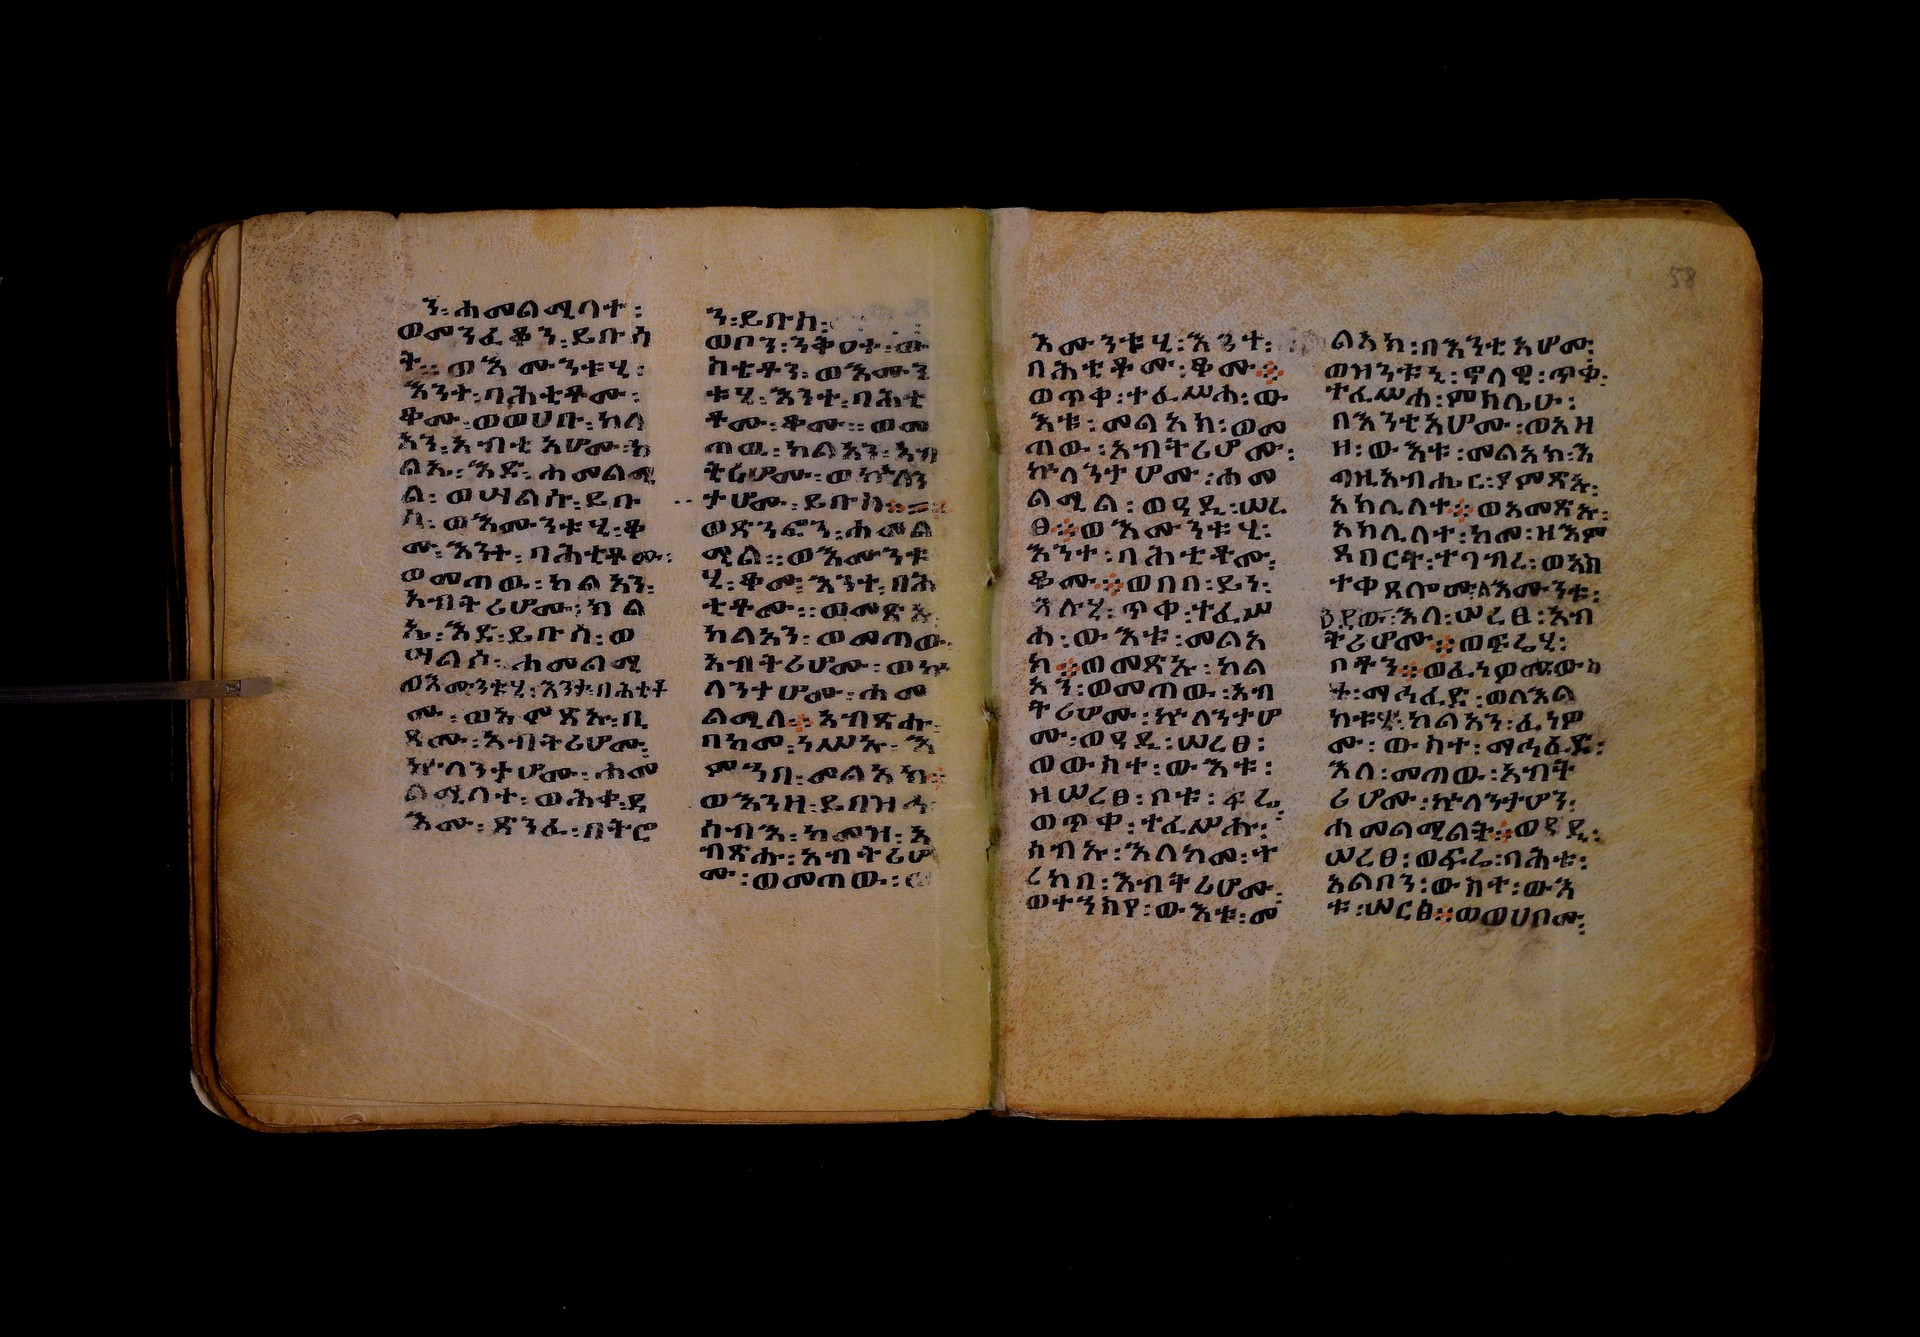 ን፡ሐመልሚላተ፡
ወመንፈቆን፡ይቡሰ
ት፡፡ወእሙንቱሂ፡
እንተ፡ባሕቲቶሙ፡
ቆሙ፡ወወሀቡ፡ካል
አን፡አብቲአሆሙ፡
ል፡ወሣልሱ፡ይቡ
ስ፡ወእሙንቱሂ፡ቆ
ሙ፡እንተ፡ባሕቲቶሙ፡
ወመጠዉ፡ካልአን፡
አብትሪሆሙ፡ካል
ኡ፡እድ፡ይቡስ፡ወ
ሣልስ፡ሐመልሚ
ወእሙንቱሂ፡እንተ፡በሕቲቶ
ሙ፡ወአምጽኡ፡ቢ
ጾሙ፡አብትሪሆሙ፡
ኵላንታሆሙ፡ሐመ
ልሚላተ፡ወሕቀ፡ደ
እሙ፡ጽንፈ፡በትሮ
ን፡ይቡስ፡
ወቦን፡ንቅዐት፡ው
ስቲቶን፡ወእሙን
ቱሂ፡እንተ፡ባሕቲ
ቶሙ፡ቆሙ፡፡ወመ
ጠዉ፡ካልአን፡አብ
ትሪሆሙ፡ወኵላን
ታሆሙ፡ይቡስ፡፡
ወጽንፎን፡ሐመል
ሚል፡፡ወእሙንቱ
ሂ፡ቆሙ፡እንተ፡በሕ
ቲቶሙ፡፡ወመጽኡ
ካልአን፡ወመጠው፡
አብትሪሆሙ፡ወኵ
ላንታሆሙ፡ሐመ
ልሚል፡፡አብጽሑ
በከመ፡ነሥኡ፡እ
ምኀበ፡መልአክ፡፡
ወእንዘ፡ይበዝኁ
ሰብእ፡ከመዝ፡አ
ብጽሑ፡አብትሪሆ
ሙ፡ወመጠው፡
እሙንቱሂ፡እንተ፡
በሕቲቶሙ፡ቆሙ፡፡
ወጥቀ፡ተፈሥሐ፡ው
እቱ፡መልአክ፡ወመ
ጠው፡አብትሪሆሙ፡
ኵላንታሆሙ፡ሐመ
ልሚል፡ወዓዲ፡ሠረ
ፀ፡፡ወእሙንቱሂ፡
እንተ፡ባሕቲቶሙ፡
ቆሙ፡፡ወበበ፡ይን፡
እሉሂ፡ጥቀ፡ተፈሥ
ሐ፡ውእቱ፡መልአ
ክ፡፡ወመጽኡ፡ካል
አን፡ወመጠው፡አብ
ትሪሆሙ፡ኵላንታሆ
ሙ፡ወዓዲ፡ሠረፀ፡
ወውስተ፡ውእቱ፡
ዘሠረፀ፡ቦቱ፡ፍሬ፡
ወጥቀ፡ተፈሥሑ፡
ሰብኡ፡እለከመ፡ት
ረከበ፡አብትሪሆሙ፡
ወተንከየ፡ውእቱ፡መ
ልአክ፡በእንቲአሆሙ፡
ወዝንቱኒ፡ኖላዊ፡ጥቀ፡
ተፈሥሐ፡ምስሌሁ፡
በእንቲአሆሙ፡ወአዘ
ዘ፡ውእቱ፡መልአክ፡እ
ግዚአብሔር፡ያምጽኡ፡
አክሊላተ፡፡ወአመጽኡ፡
አክሊላተ፡ከመ፡ዘእም
ጸበርት፡ተገብረ፡ወአስ
ተቀጸሎሙ፡ለእሙንቱ፡
ዕደው፡እለ፡ሠረፀ፡አብ
ትሪሆሙ፡፡ወፍሬሂ፡
ቦቶን፡፡ወፈነዎሙ፡ውስ
ተ፡ማኅፈድ፡ወለእል
ክቱሂ፡ካልአን፡ፈነዎ
ሙ፡ውስተ፡ማኅፈድ፡
እለ፡መጠው፡አብት
ሪሆሙ፡ኵላንታሆን፡
ሐመልሚልት፡፡ወዓዲ፡
ሠረፀ፡ወፍሬ፡በሕቱ፡
አልቦን፡ውስተ፡ውእ
ቱ፡ሠርፅ፡፡ወወሀቦሙ፡